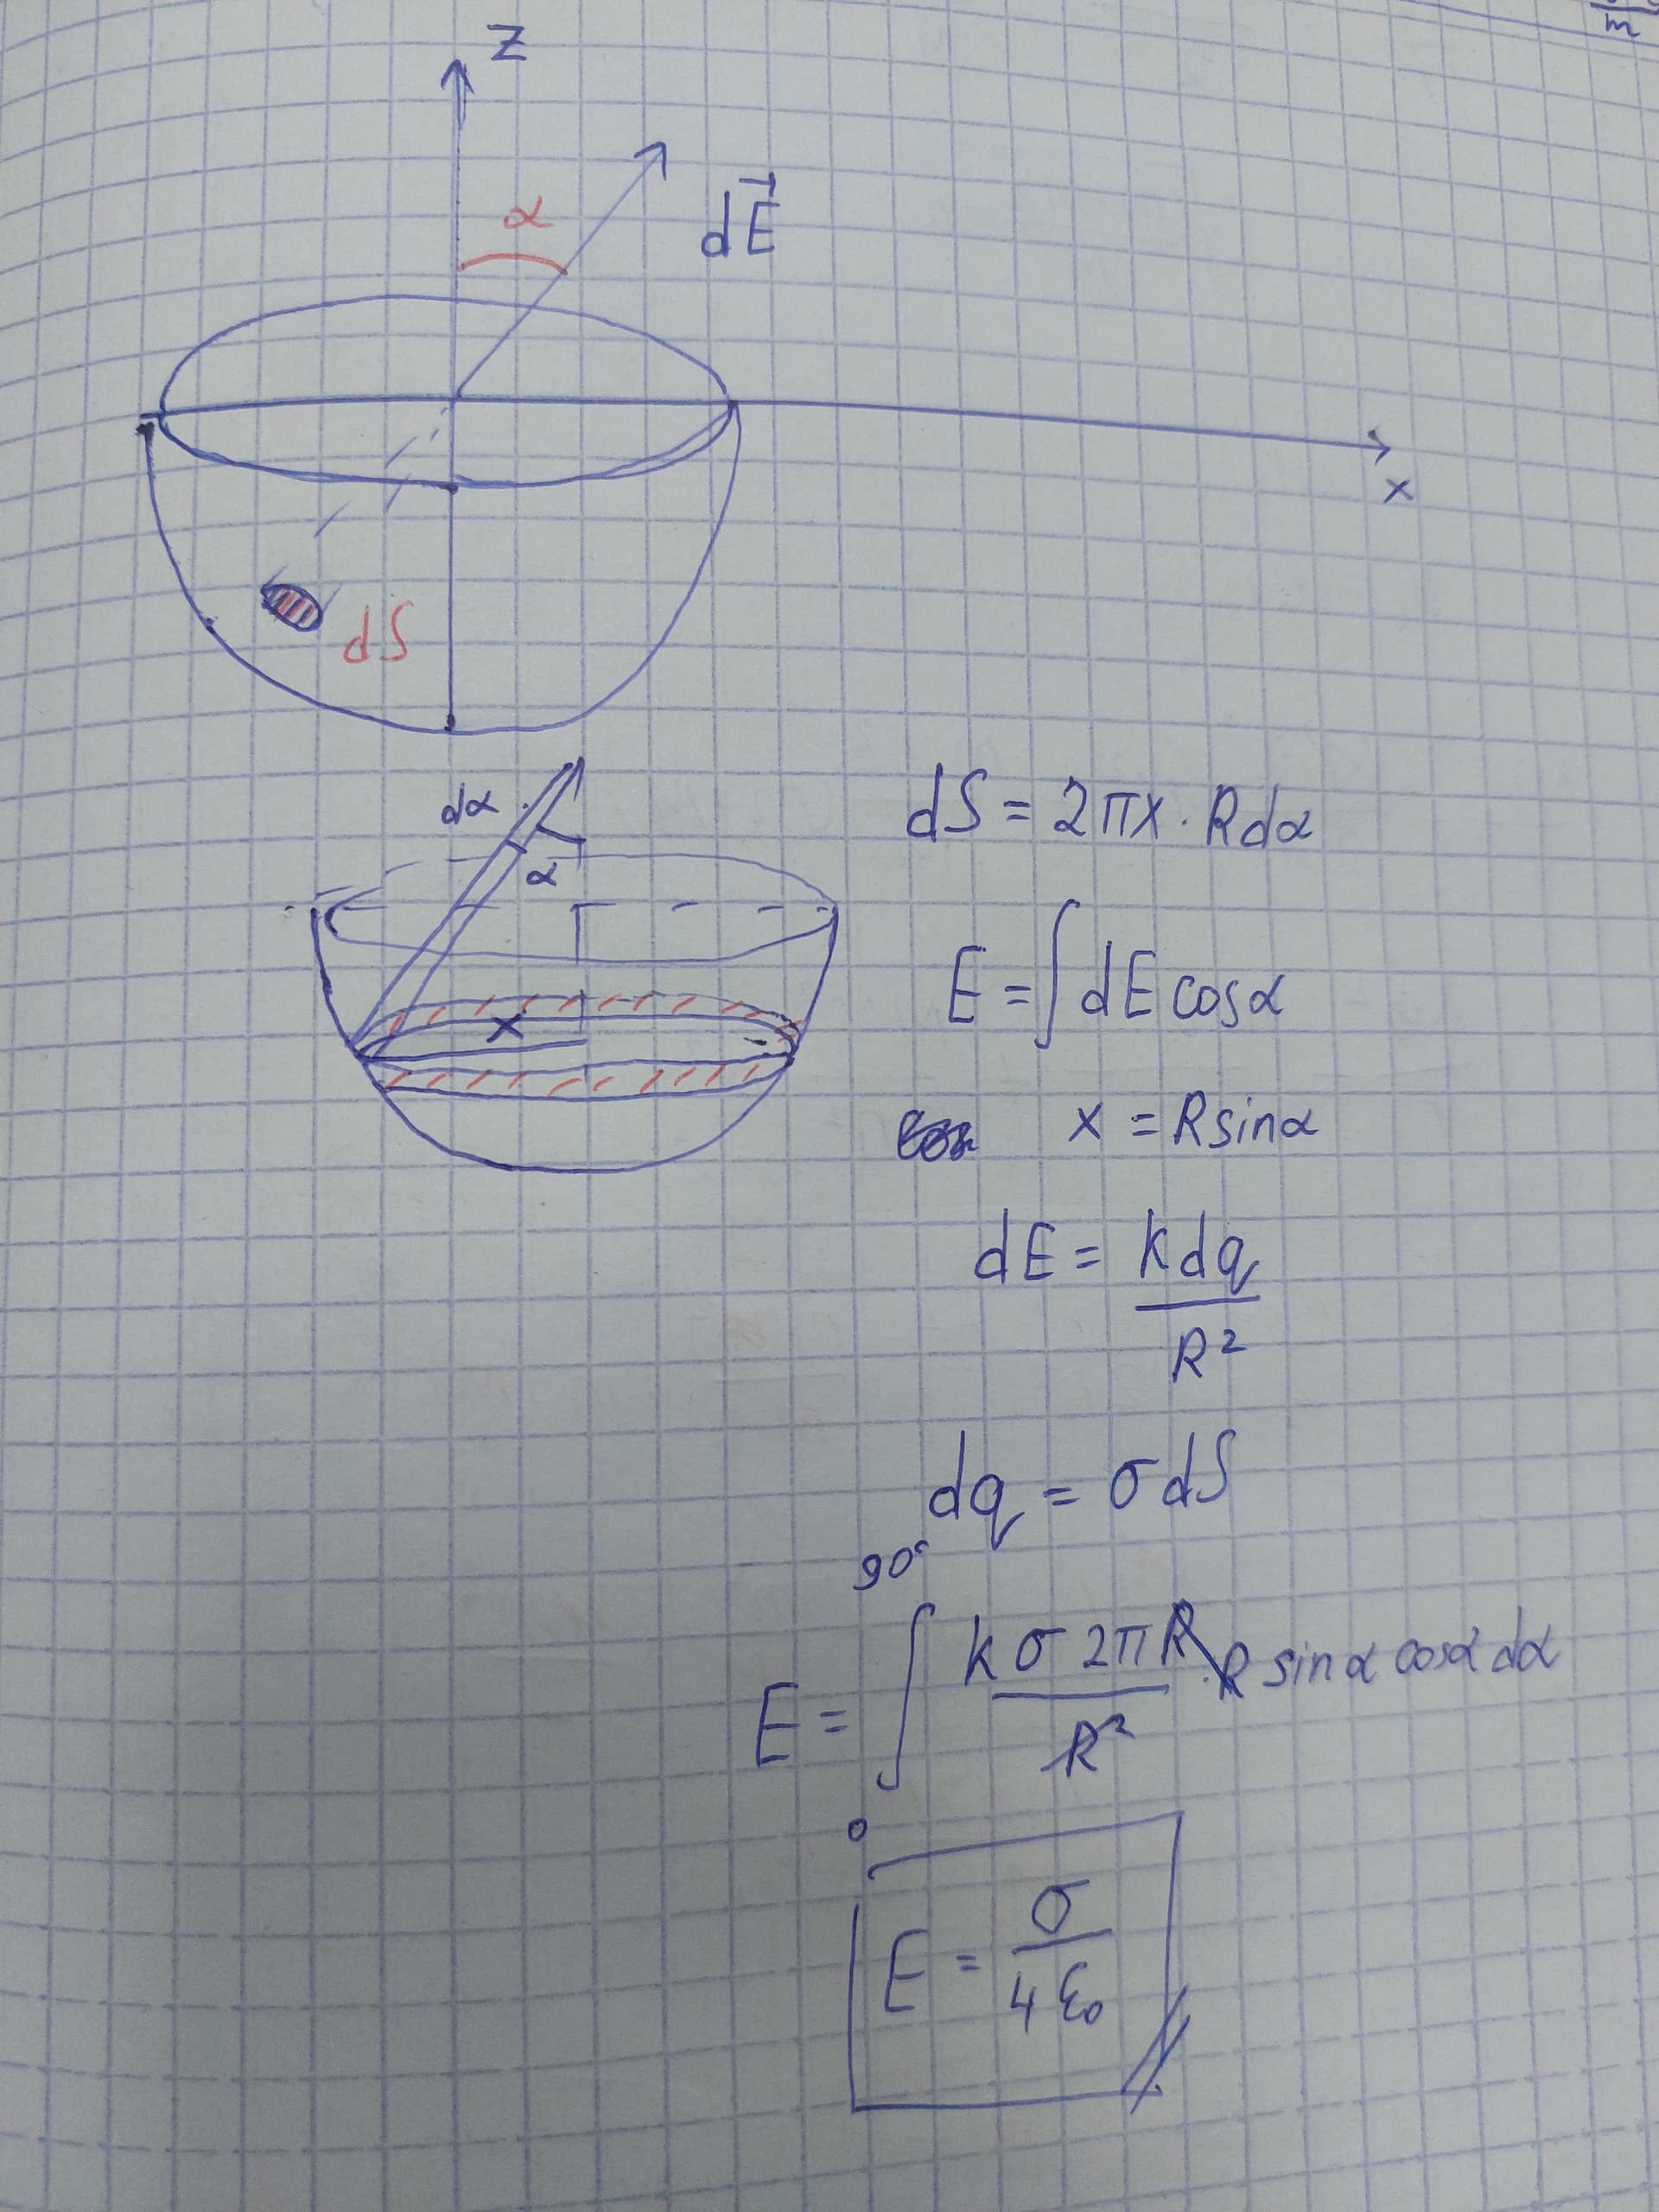 m
z
α
dE⃗
x
dS
dα
α
x
dS = 2πx · Rdα
E = ∫ dE cosα
x = Rsinα
dE = kdq / R²
dq = σdS
90°
E = ∫ kσ2πR / R² · R sinα cosα dα
0
E = σ / 4ε₀